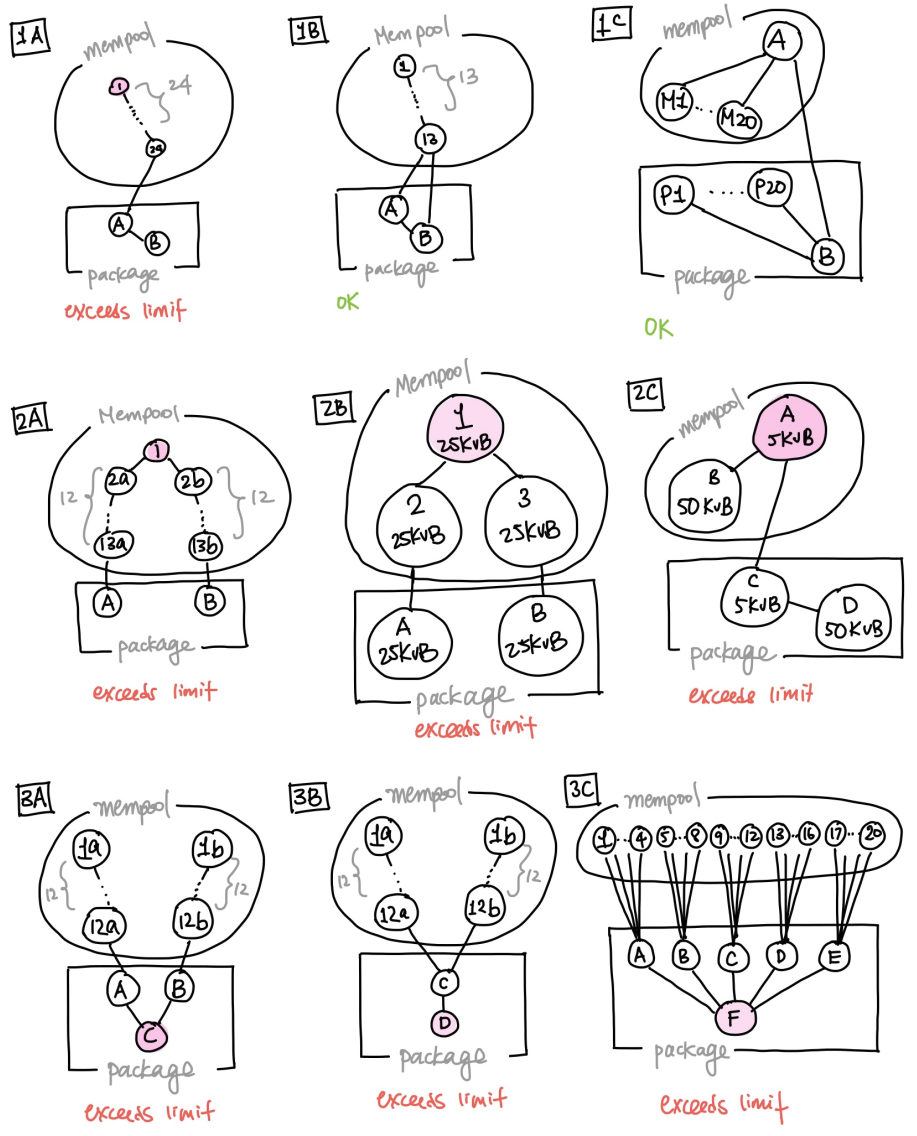 1A
mempool
1
24
24
A
B
package
exceeds limit
1B
Mempool
1
13
13
A
B
package
OK
1C
mempool
A
M1 .... M20
P1 .... P20
B
package
OK
2A
Mempool
1
2a 2b
12 12
13a 13b
A B
package
exceeds limit
2B
Mempool
1
25KvB
2 3
25KvB 25KvB
A B
25KvB 25KvB
package
exceeds limit
2C
mempool
A
5KvB
B
50KvB
C
5KvB
D
50KvB
package
exceeds limit
3A
mempool
1a 1b
12 12
12a 12b
A B
C
package
exceeds limit
3B
mempool
1a 1b
12 12
12a 12b
C
D
package
exceeds limit
3C
mempool
1 ... 4 5 ... 8 9 ... 12 13 ... 16 17 ... 20
A B C D E
F
package
exceeds limit